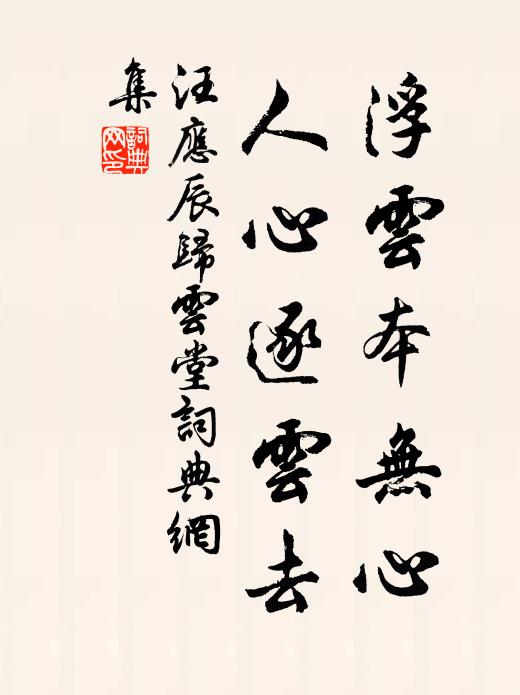 浮雲本無心
人心逐雲去
汪應辰歸雲堂詞典網
集
詞典網印